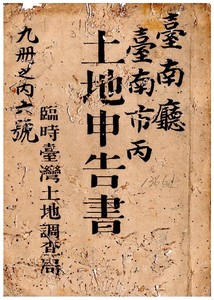 臺南廳
臺南市丙
土地申告書
臨時臺灣土地調查局
九册之内六號